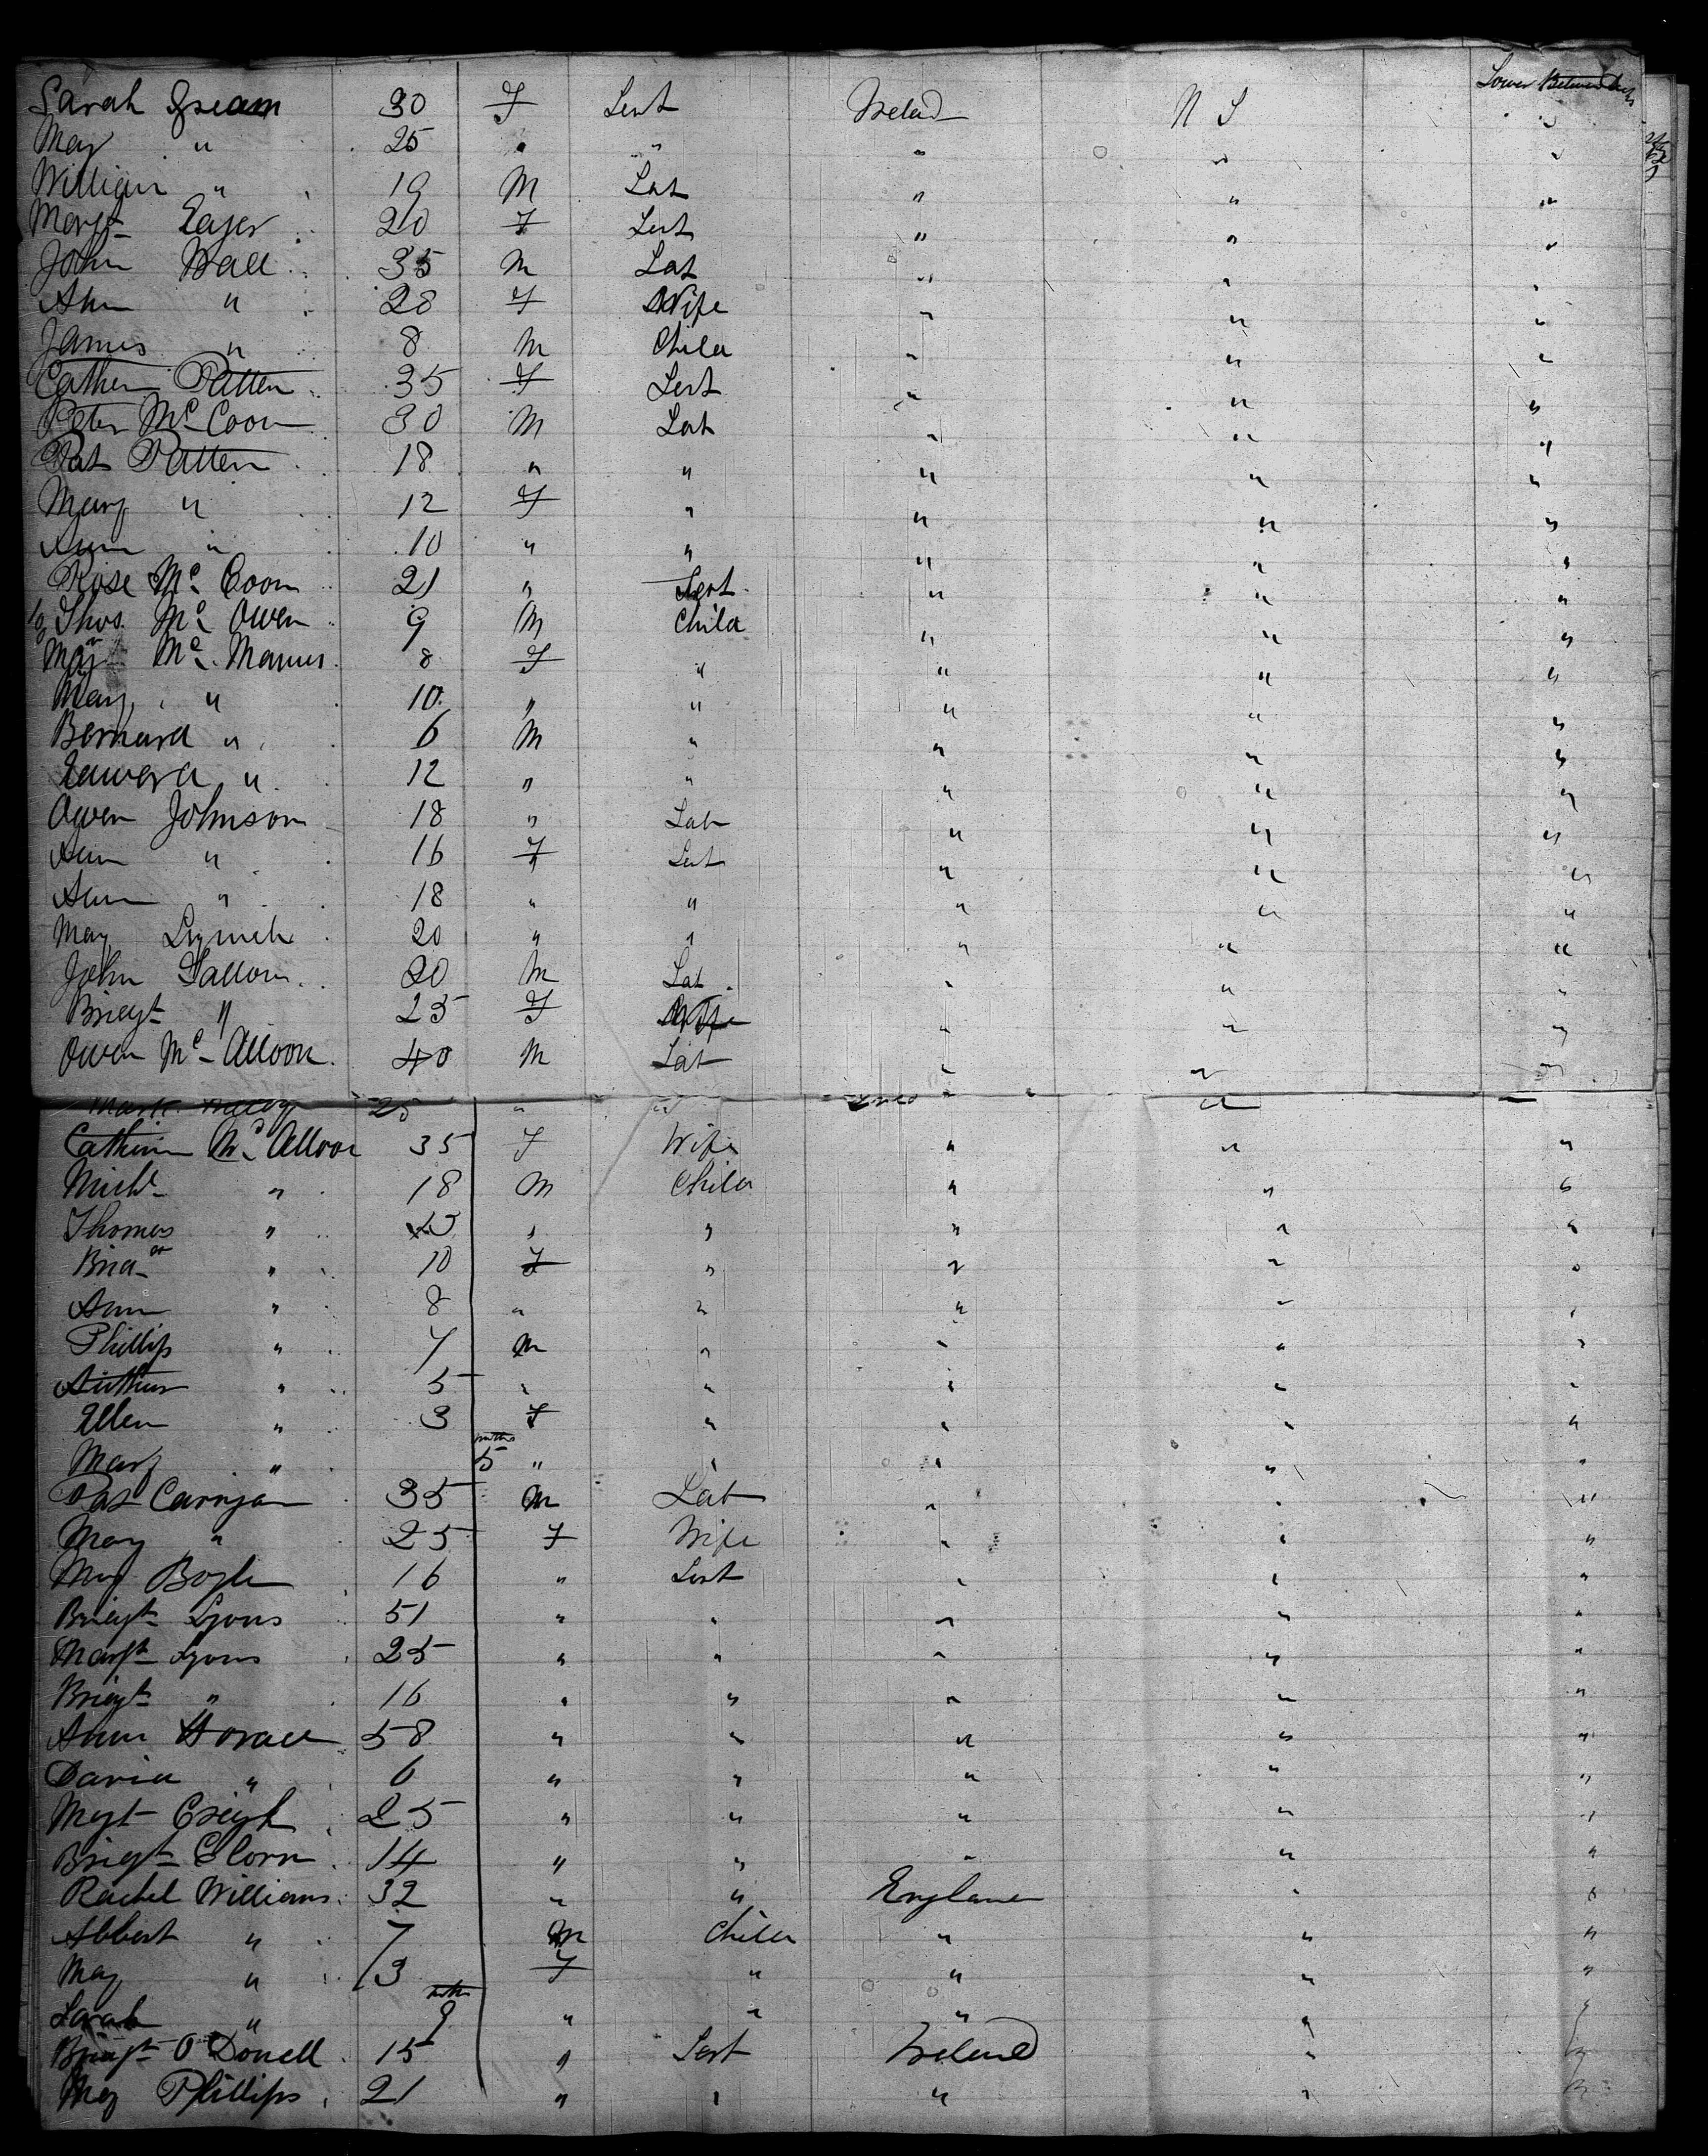 Lower Between decks
Sarah Gream 30 F Sert Ireland N S "
May " 25 " " " " "
William " 19 M Lab " " "
Margt Eager 20 F Sert " " "
John Wall 35 M Lab " " "
Ann " 28 F Wife " " "
James " 8 M Child " " "
Cathern Patten 35 F Sert " " "
Peter Mc Coon 30 M Lab " " "
Pat Patten 18 " " " " "
Mary " 12 F " " " "
Ann " 10 " " " " "
Rose Mc Coon 21 " Sert " " "
Thos. Mc Owen 9 M Child " " "
Mc Manus 8 F " " " "
Mary " 10 " " " " "
Bernard " 6 M " " " "
Edward " 12 " " " " "
Owen Johnson 18 " Lab " " "
Ann " 16 F Sert " " "
Ann " 18 " " " " "
May Lynch 20 " " " " "
John Fallon 20 M Lab " " "
Bridgt " 25 F Wife " " "
Owen Mc Alloon 40 M Lab " " "
Mark 25 " " "
Catherin Mc Alloon 35 F Wife " " "
Michl " 18 M Child " " "
Thomas " " " " " "
" 10 F " " " "
Ann " 8 " " " " "
Phillip " 7 M " " " "
Arthur " 5 " " " " "
Ellen " 3 F " " " "
Mary " 5 mths " " " " "
Pat Carrigan 35 M Lab " " "
Mary " 25 F Wife " " "
Mary Boyle 16 " Sert " " "
Bridgt Lyons 51 " " " " "
Margt Lyons 25 " " " " "
Bridgt " 16 " " " " "
Ann Horace 58 " " " " "
David " 6 " " " " "
Mgt Creigh 25 " " " " "
Bridgt Clorn 14 " " " " "
Rachel Williams 32 " " England " "
Albert " 7 M Child " " "
May " 3 F " " " "
Sarah " 9 mths " " " " "
Bridgt O Donell 15 " Sert Ireland " "
Mary Phillips 21 " " " " "